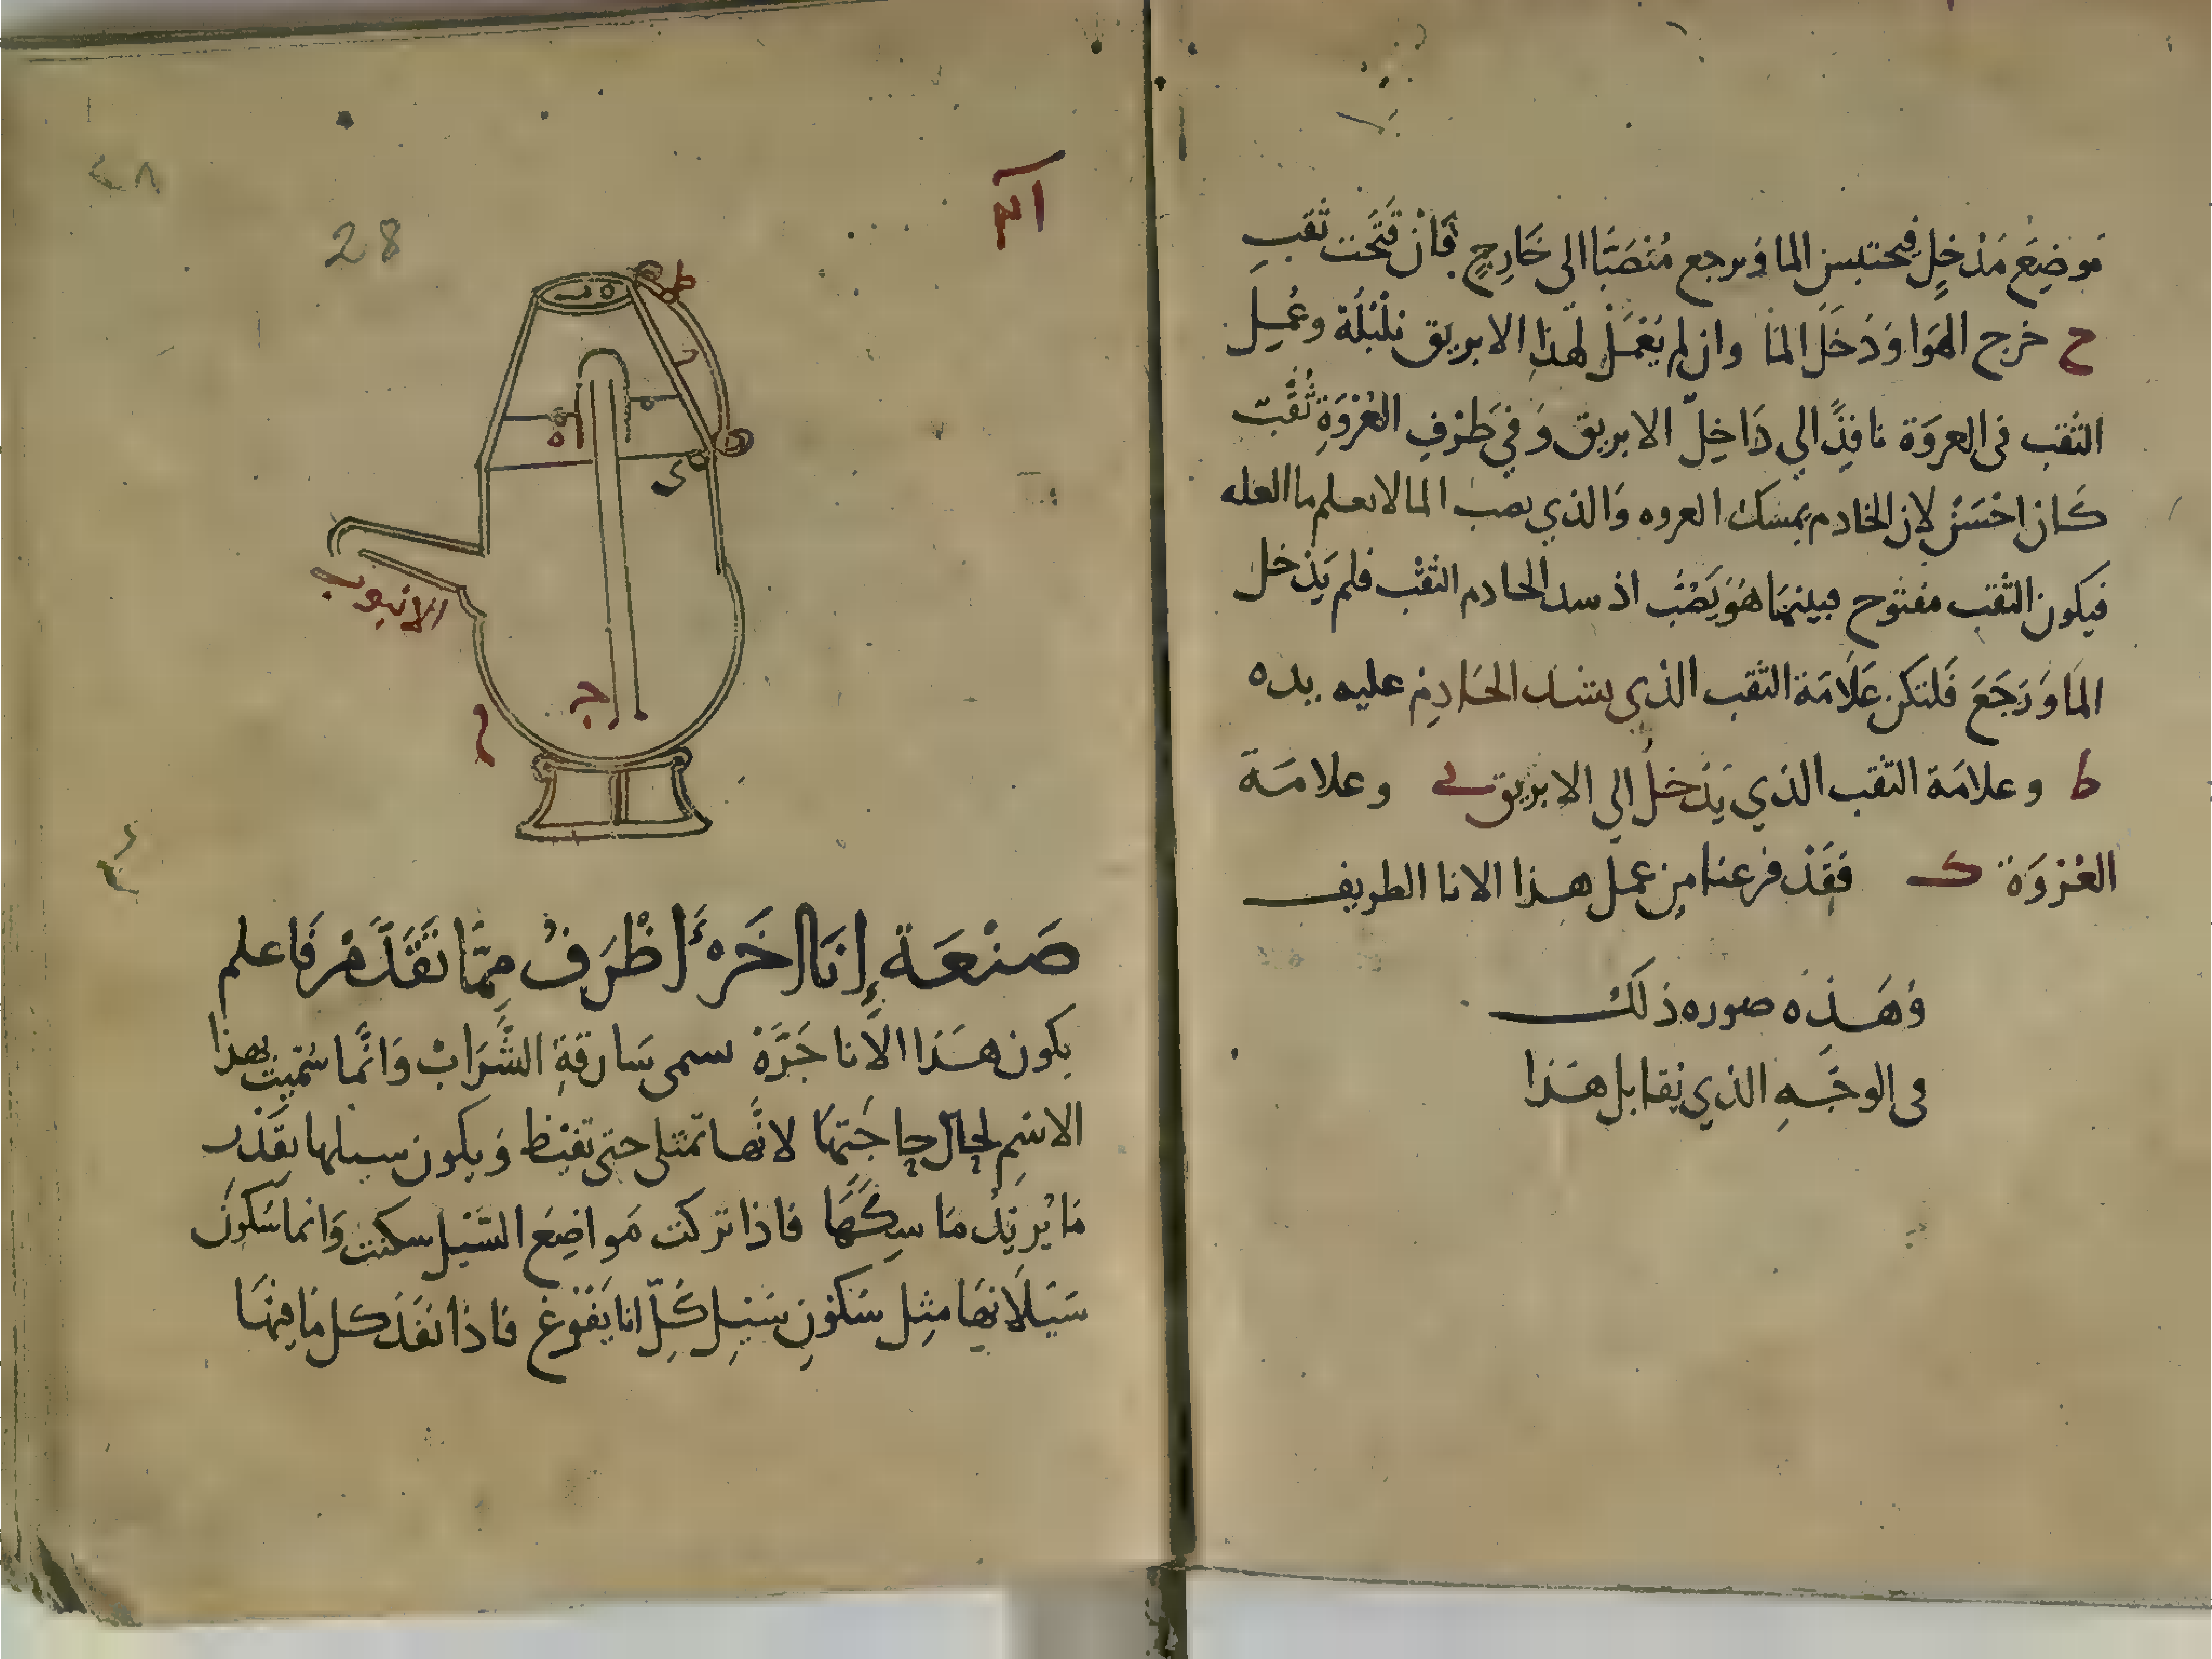 مَوضِعَ مَدْخلٍ فيحتبس الما وَيرجع مُنْصَبًّا الى خَارِجٍ فَانْ فَتَحت ثقب
ح خرج الهَوَا وَدَخَلَ المَا وان لم يَعْمَلْ لهذا الابريق بُلْبُلَة وعُمِل
الثقب فى العروَة نافِذًا الي دَاخِل الابريق وَفي طَرْفِ العُرْوَةِ ثُقْب
كَان احْسَنْ لان الخادم يمسَك العروه وَالذي يصب الما لا يعلم ما العله
فيكون الثقب مفتوح فبينمَا هُوَ يَصُبُّ اذ سد الخادم الثقْب فلم يَدْخل
المَا وَرَجَعَ فَلتكن عَلَامَة الثقب الذي يشد الخَادِمْ عليه يده
ط وعلامَة الثقب الذي يَدْخلُ الي الابريق ى وعلامَة
العُرْوَة ك فَقَدْ فرغنا مِن عمل هذا الانا الطريف
وَهَذِه صوره ذلك
فى الوجْهِ الذي يُقابل هَذا
٢٨
28
ط
ب
ه
ى
الانبوب
ج
صَنْعَة إِنَا اخَرَ أظْرَفُ مِمَّا تَقَدَّمْ فَاعلم
يكون هَذا الانا جَرَّة سمى سَارقةِ الشَّرَابْ وَانَّما سُمّيت بهذا
الاسْمِ لحال حاجَتهَا لانَّها تمتلى حتى تفيْظ وَيكون سيلها بقَدْر
مَا يُريْدُ مَاسِكهَا فاذا تركت مَواضِعَ السَّيْل سكنت وَانما سَكونُ
سَيَلَانهَا مثِل سَكوْنِ سَيْلِ كُلِّ انا يَفْرُغ فاذا نفَدَ كل مَا فيْهَا